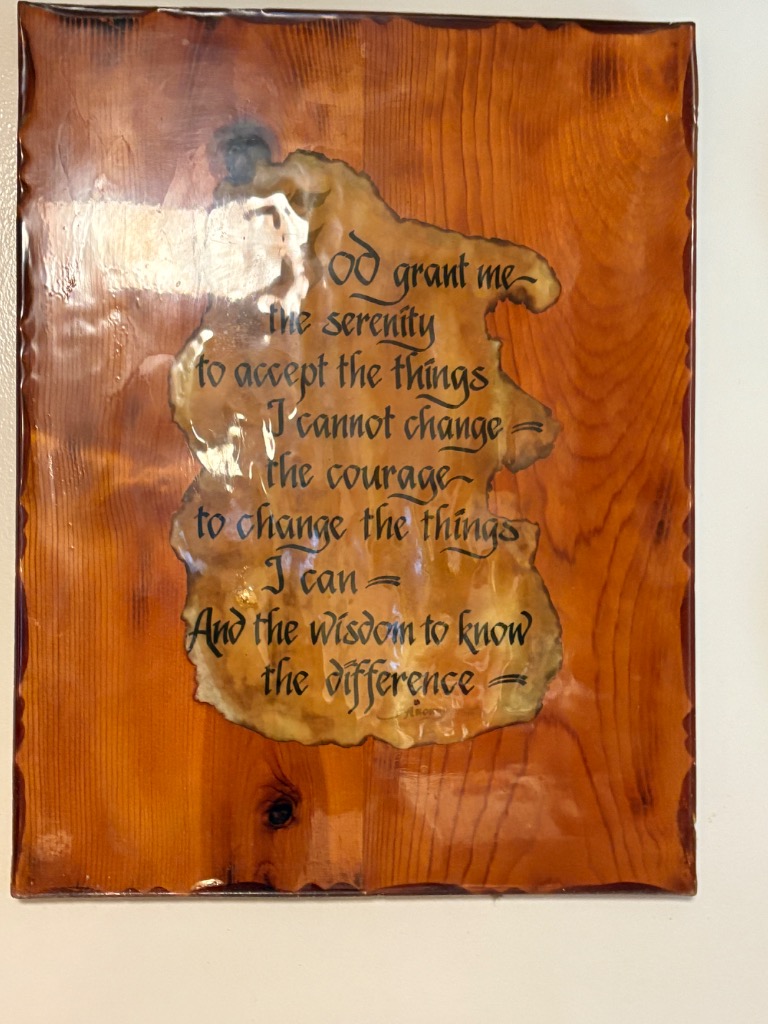 od grant me
the serenity
to accept the things
I cannot change =
the courage
to change the things
I can =
And the wisdom to know
the difference =